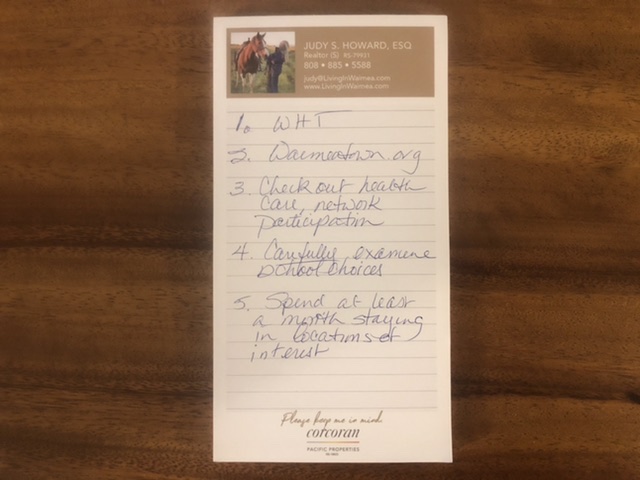 JUDY S. HOWARD, ESQ
Realtor (S) RS-79931
808 • 885 • 5588
judy@LivingInWaimea.com
www.LivingInWaimea.com
1. WHT
2. Waimeatown.org
3. Check out health
care, network
participation
4. Carefully examine
school choices
5. Spend at least
a month staying
in locations of
interest
Please keep me in mind
corcoran
PACIFIC PROPERTIES